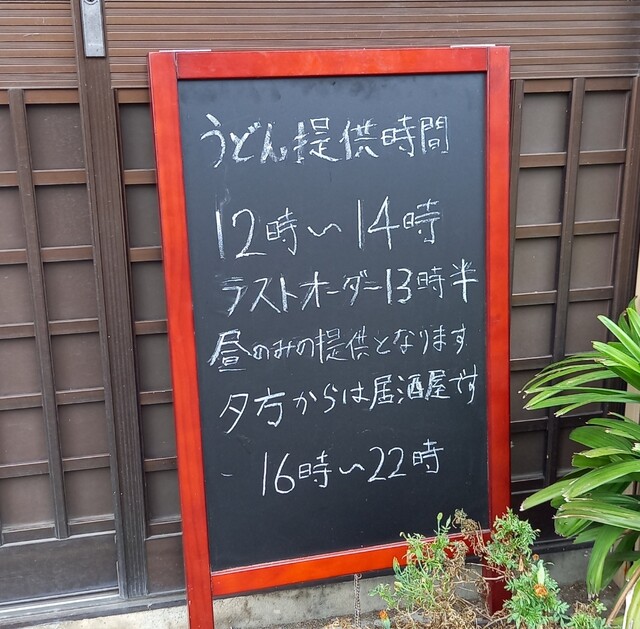 うどん提供時間
12時〜14時
ラストオーダー13時半
昼のみの提供となります
夕方からは居酒屋です
16時〜22時